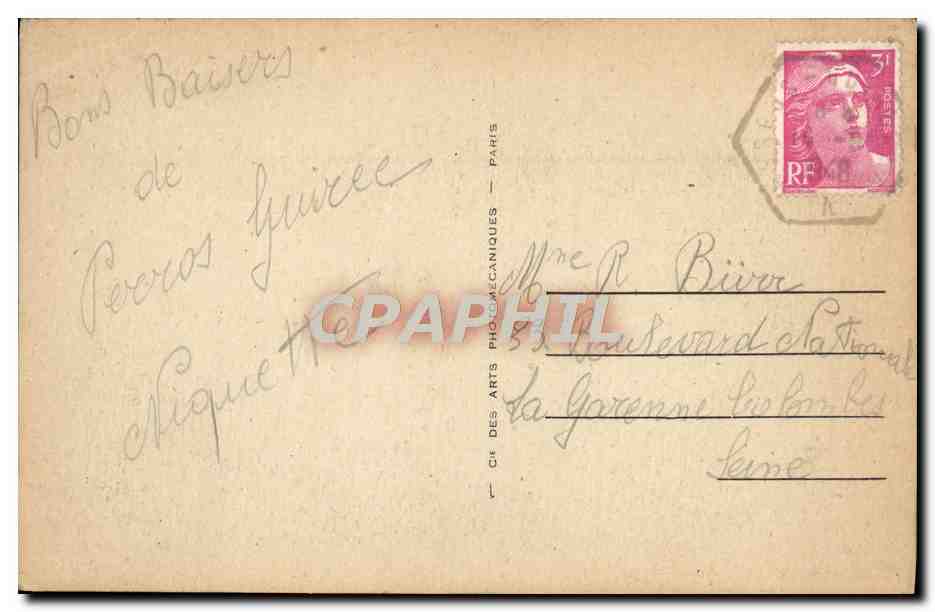 Bons Baisers
de
Perros Guirec
Niquette
— CIE DES ARTS PHOTOMÉCANIQUES — PARIS
3F
POSTES
RF
Mme R. Bürr
53 Boulevard Nationale
La Garenne Colombes
Seine
CPAPHIL